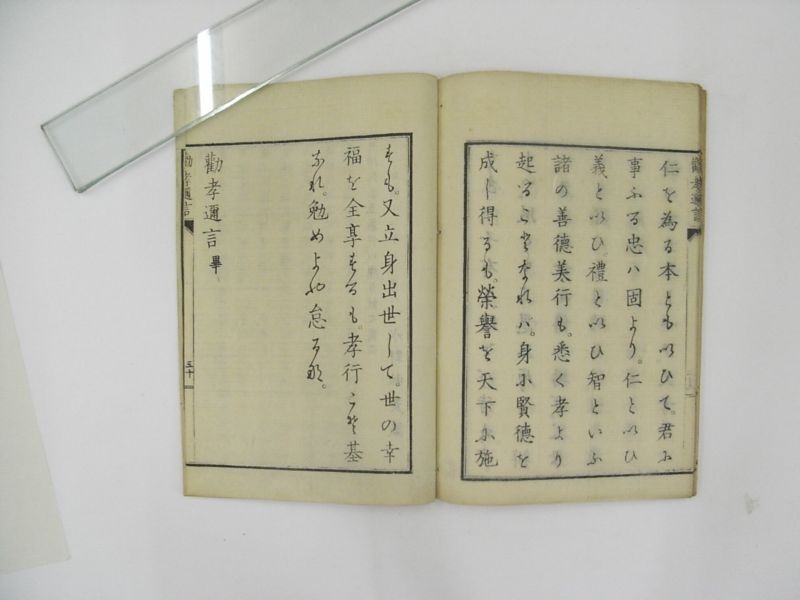 仁を為る本とも以ひて。君ふ
事ふる忠ハ固より。仁といひ
義といひ。禮といひ智といふ
諸の善德美行も。悉く孝より
起るこなれハ。身ふ賢德を
成し得るも。榮譽を天下ふ施
すも。又立身出世して。世の幸
福を全享するも。孝行こそ基
なれ。勉めよや怠るな。
勸孝邇言 畢
勸孝邇言
勸孝邇言
三十